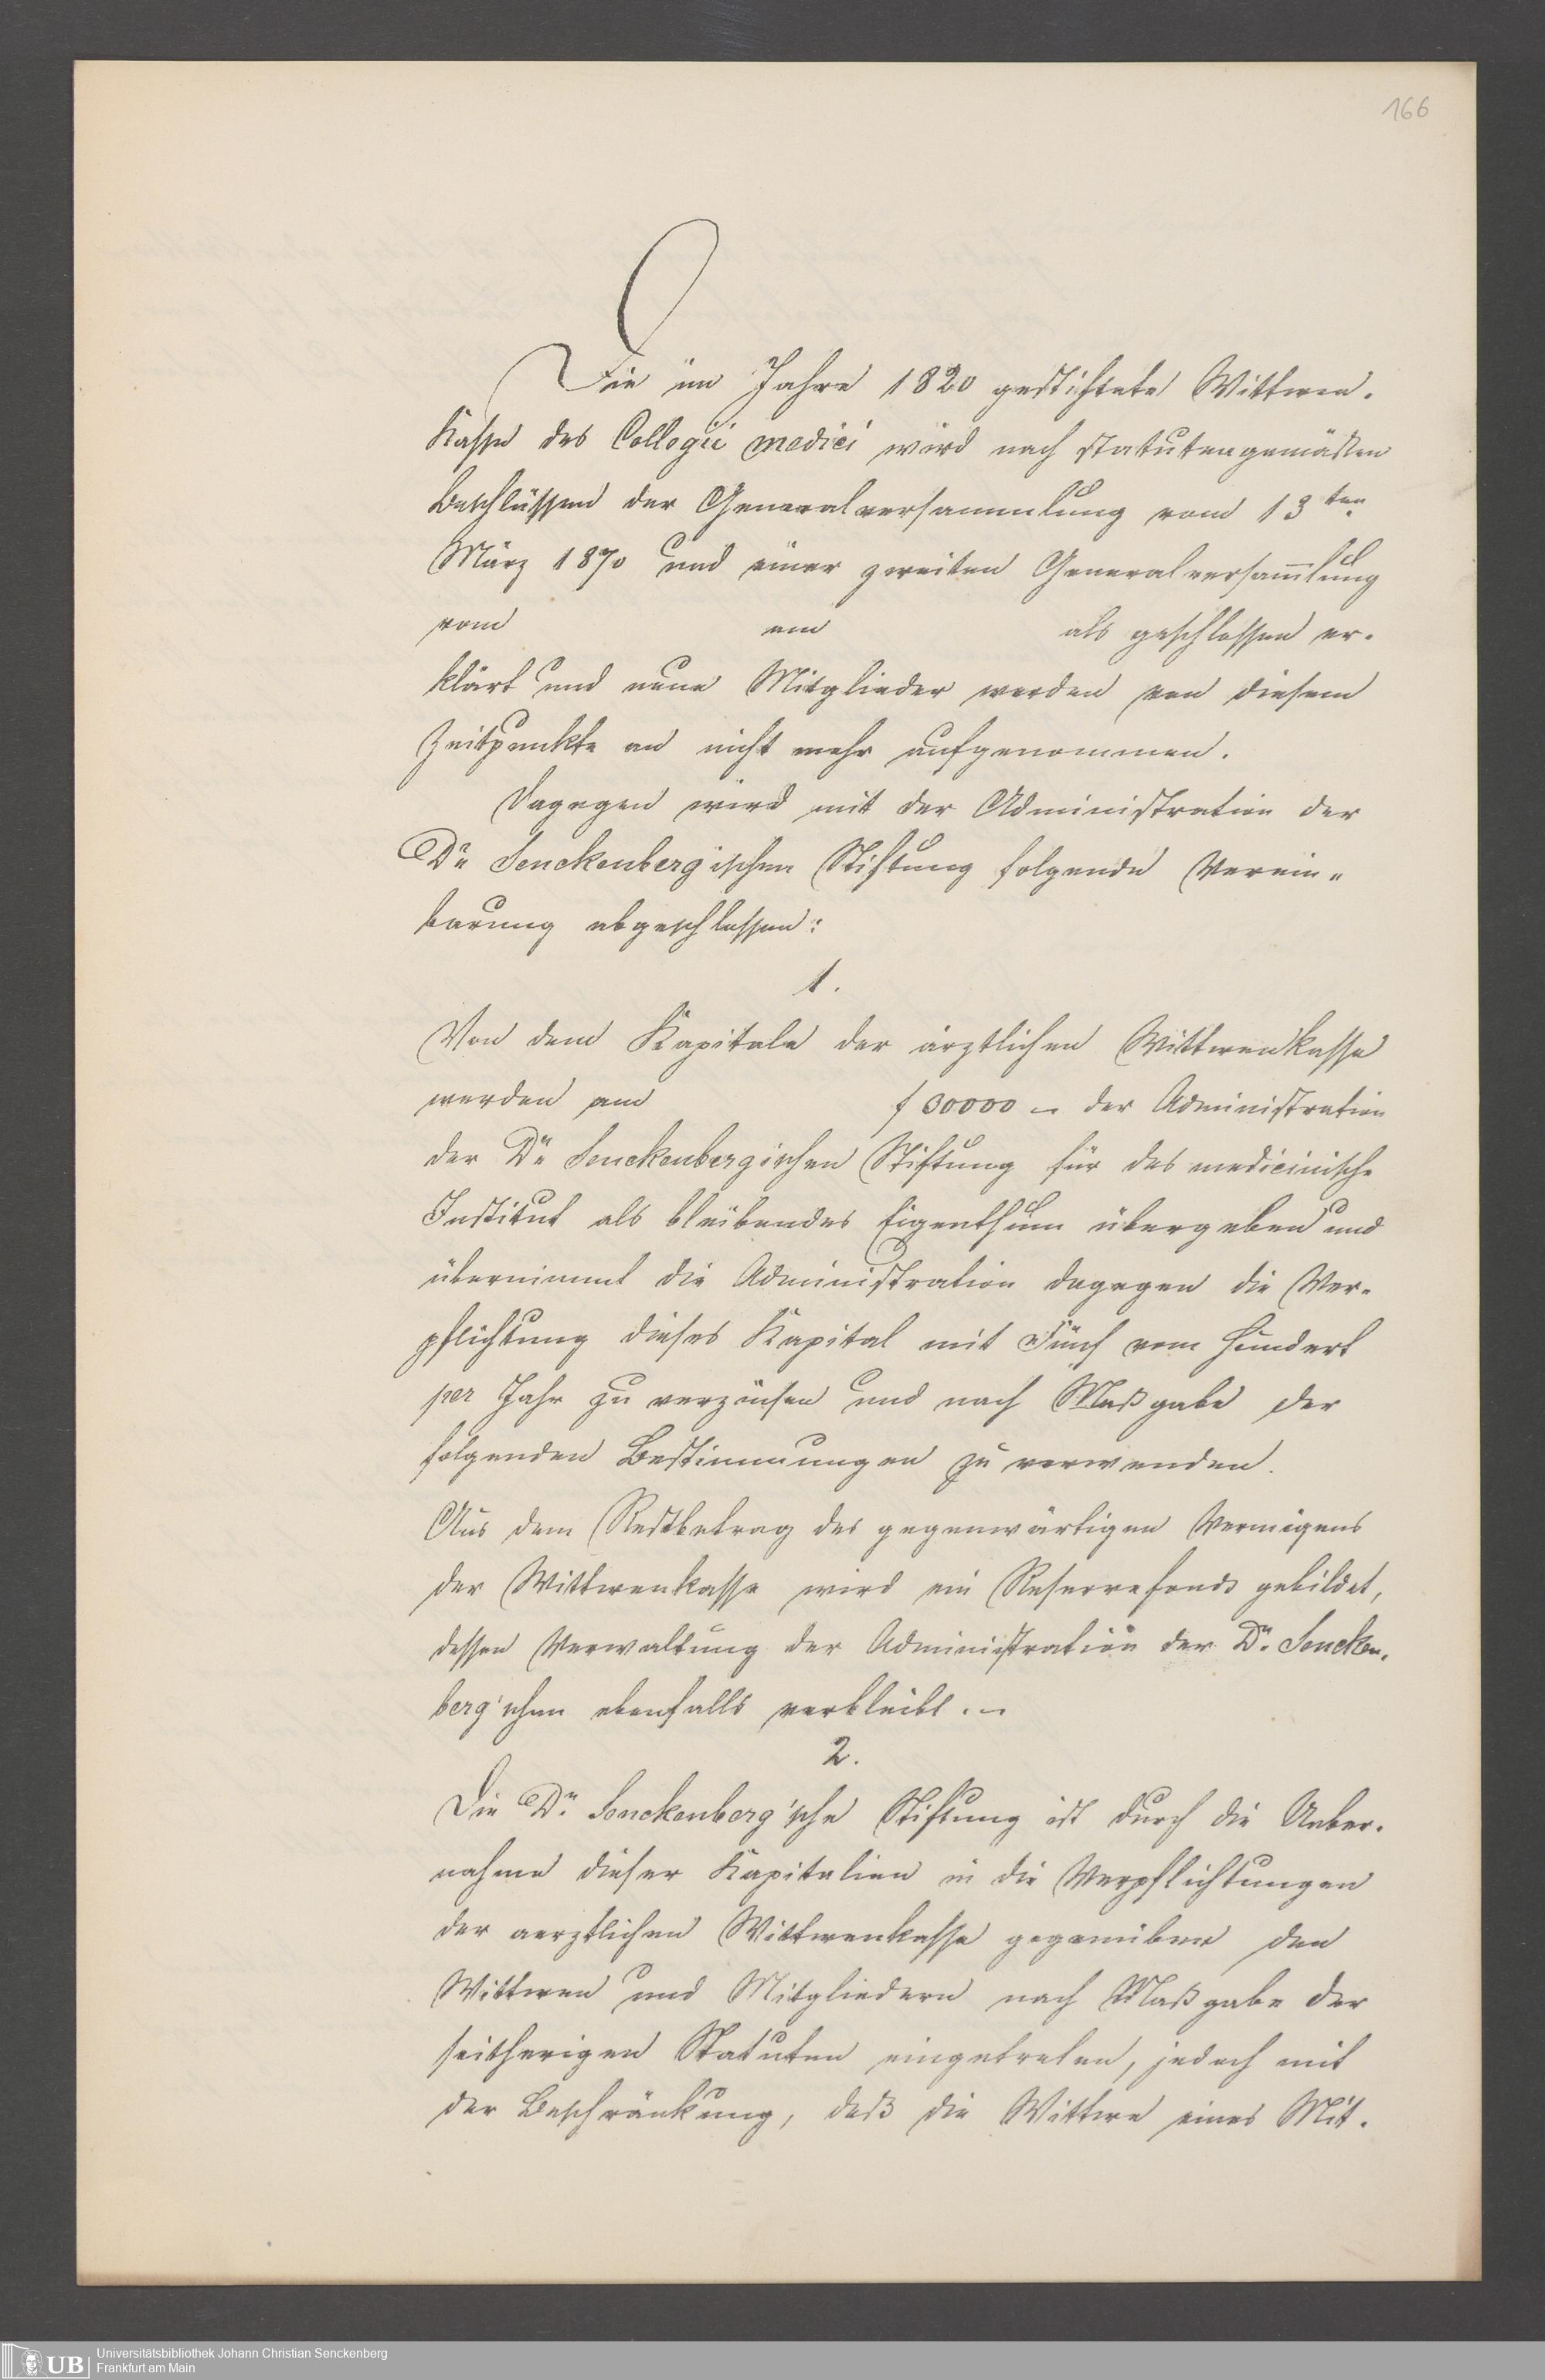 166
Die im Jahre 1820 gestiftete Wittwen-
Kasse des Collegii medici wird nach statutengemäßen
Beschlüssen der Generalversammlung vom 13ten
März 1870 und einer zweiten Generalversam̅lung
vom am als geschlossen er-
klärt und neue Mitglieder werden von diesem
Zeitpunkte an nicht mehr aufgenommen.
Dagegen wird mit der Administration der
Dr. Senckenberg'ischen Stiftung folgende Verein-
barung abgeschlossen:
1.
Von dem Kapitale der ärztlichen Wittwenkasse
werden am f 30000 – der Administration
der Dr. Senckenbergischen Stiftung für das medicinische
Institut als bleibendes Eigenthum übergeben und
übernimmt die Administration dagegen die Ver-
pflichtung dieses Kapital mit Fünf vom Hundert
per Jahr zu verzinsen und nach Maßgabe der
folgenden Bestimmungen zu verwenden.
Aus dem Restbetrag des gegenwärtigen Vermögens
der Wittwenkasse wird ein Reservefonds gebildet,
dessen Verwaltung der Administration der Dr. Sencken-
berg'schen ebenfalls verbleibt. –
2.
Die Dr. Senckenberg'sche Stiftung ist durch die Ueber-
nahme dieser Kapitalien in die Verpflichtungen
der aerztlichen Wittwenkasse gegenüber den
Wittwen und Mitgliedern nach Maßgabe der
seitherigen Statuten eingetreten, jedoch mit
der Beschränkung, daß die Wittwe eines Mit-
UB
Universitätsbibliothek Johann Christian Senckenberg
Frankfurt am Main